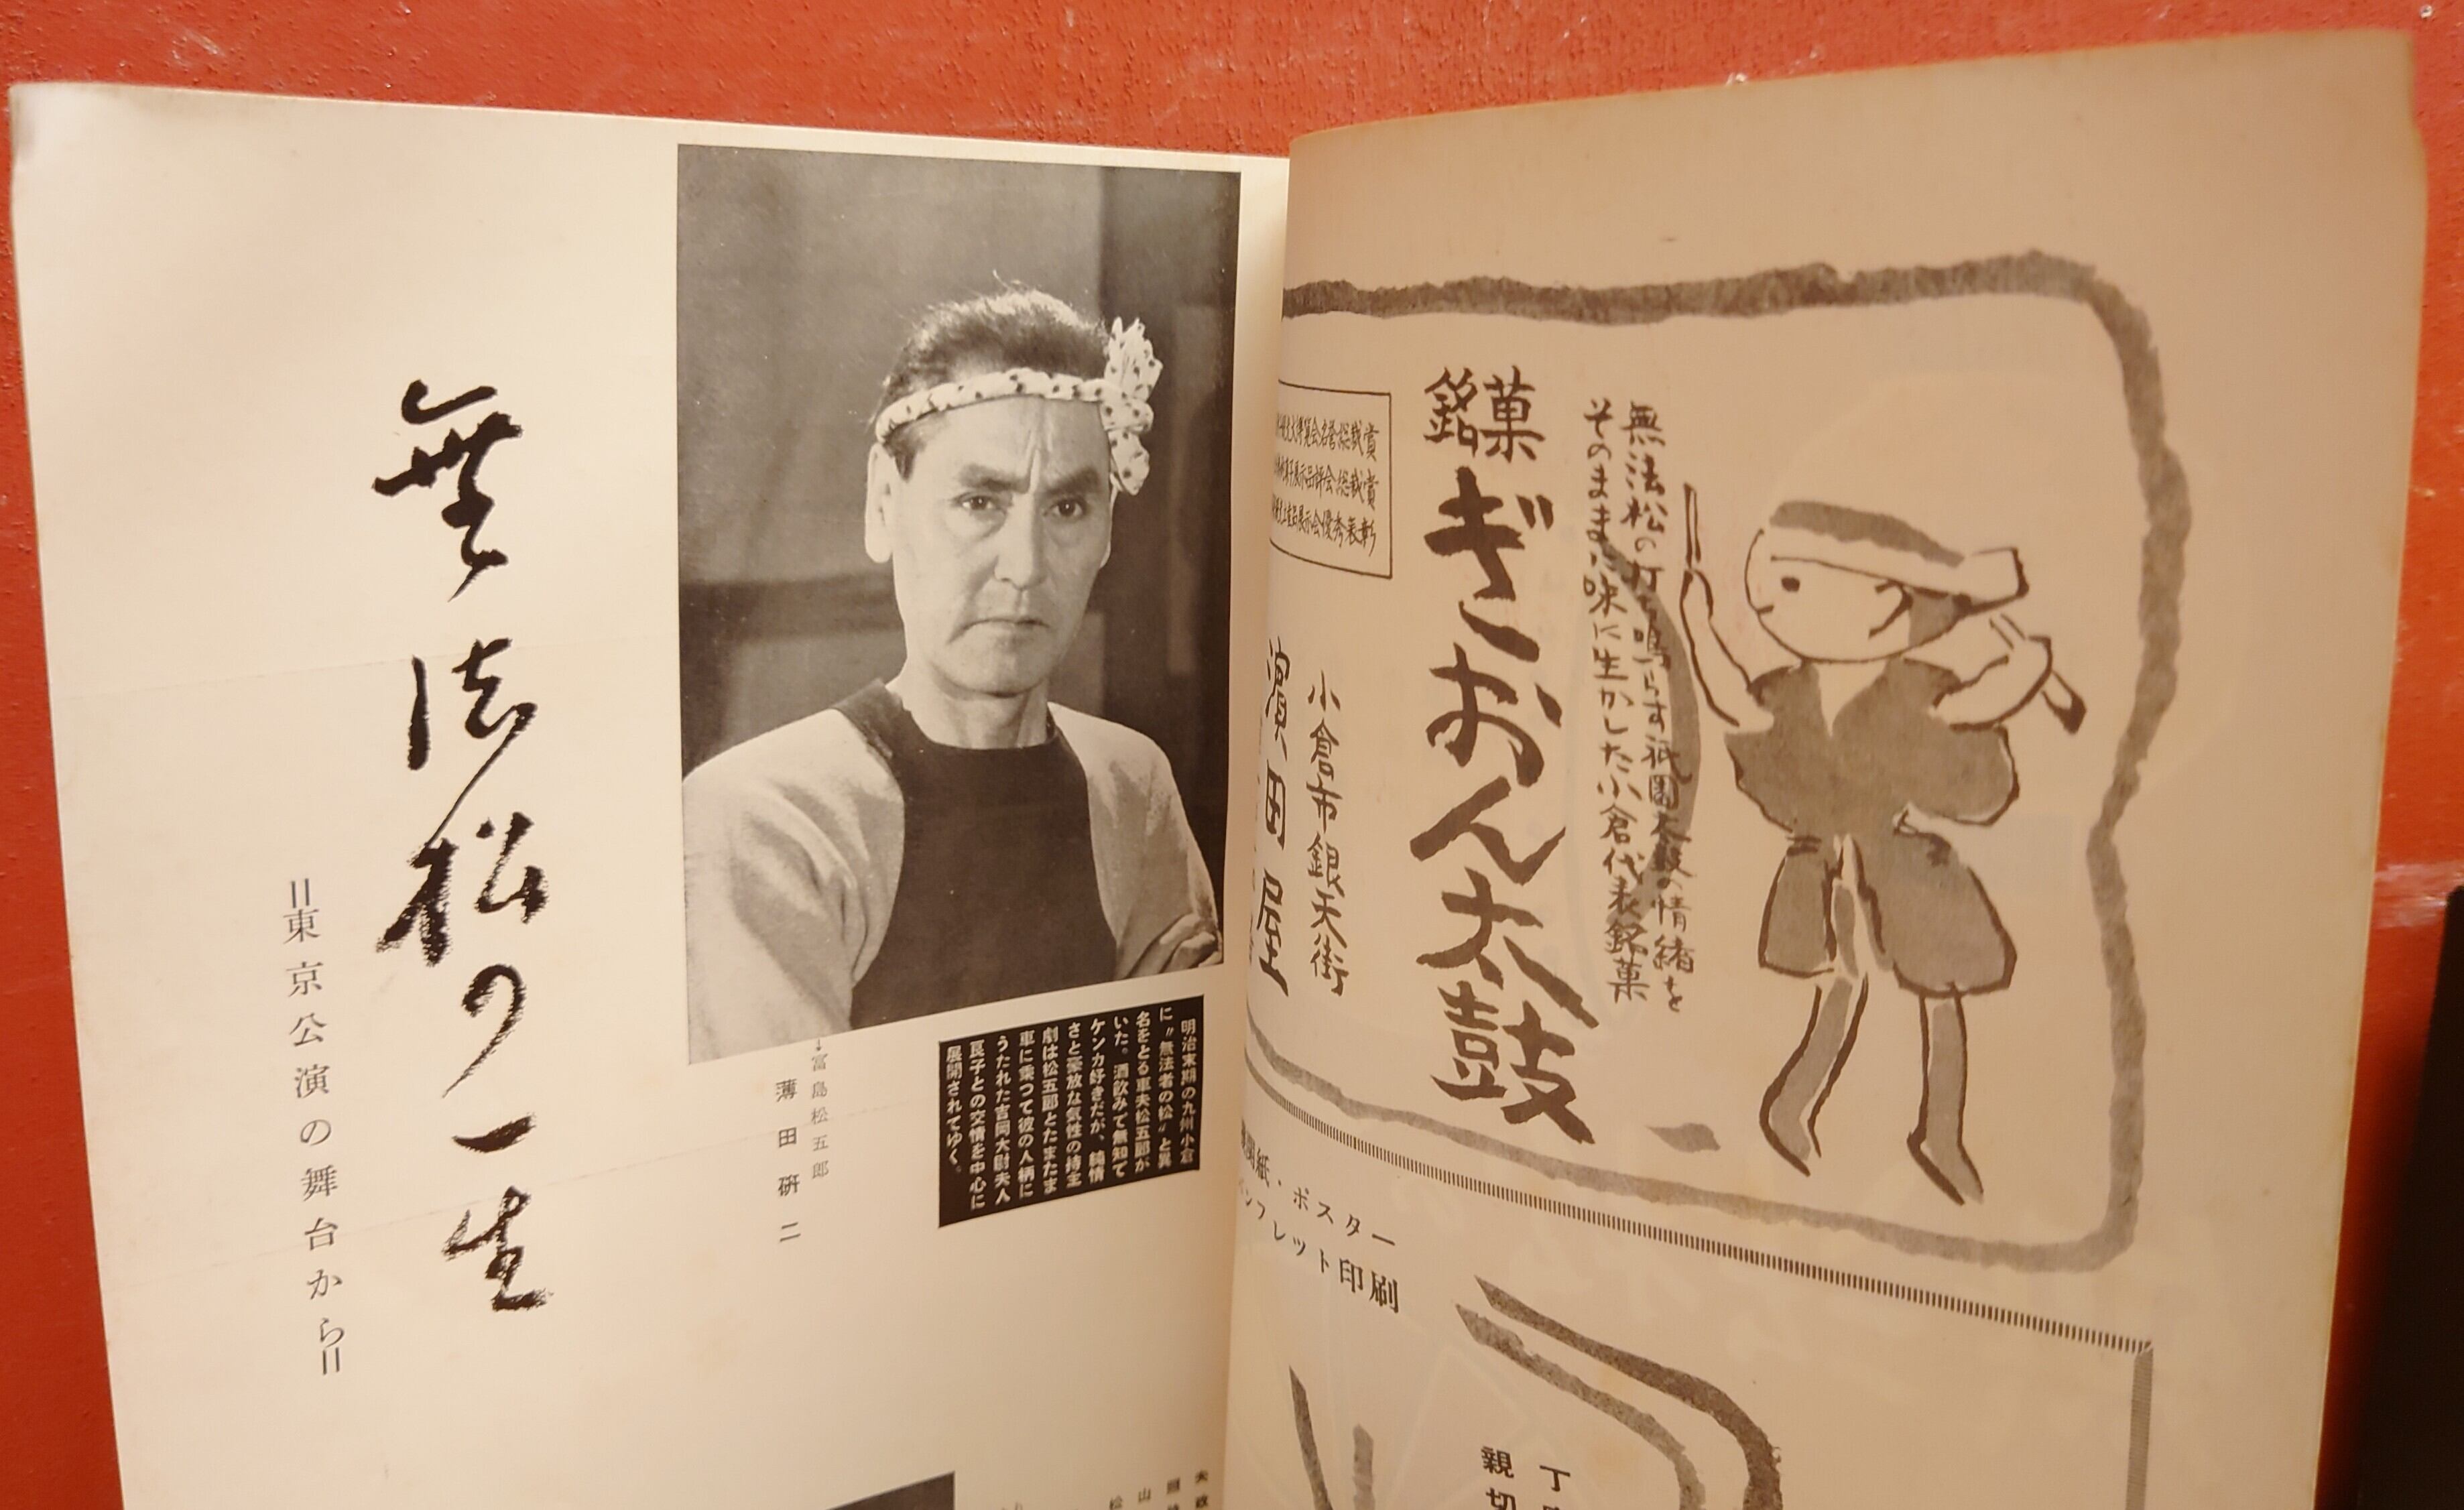 無法松の打ち鳴らす祇園太鼓の情緒を
そのままに味に生かした小倉代表銘菓
銘菓
ぎおん太鼓
会名誉総裁賞
展示品評会総裁賞
展示会優秀表彰
小倉市銀天街
濱田屋
聞紙・ポスター
ンフレット印刷
丁
親切
明治末期の九州小倉
に〝無法者の松〟と異
名をとる車夫松五郎が
いた。酒飲みで無知で
ケンカ好きだが、純情
さと豪放な気性の持主
劇は松五郎とたまたま
車に乗つて彼の人柄に
うたれた吉岡大尉夫人
良子との交情を中心に
展開されてゆく。
↓富島松五郎
薄田硏二
無法松の一生
=東京公演の舞台から=